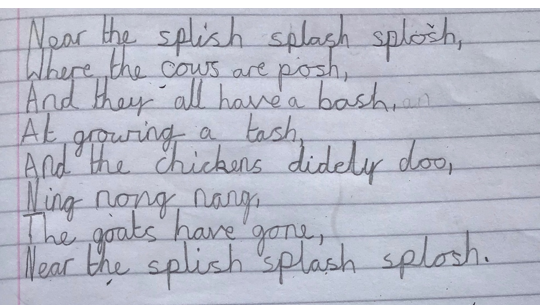 Near the splish splash splosh,
Where the cows are posh,
And they all have a bash,
At growing a tash,
And the chickens didely doo,
Ning nong nang,
The goats have gone,
Near the splish splash splosh.